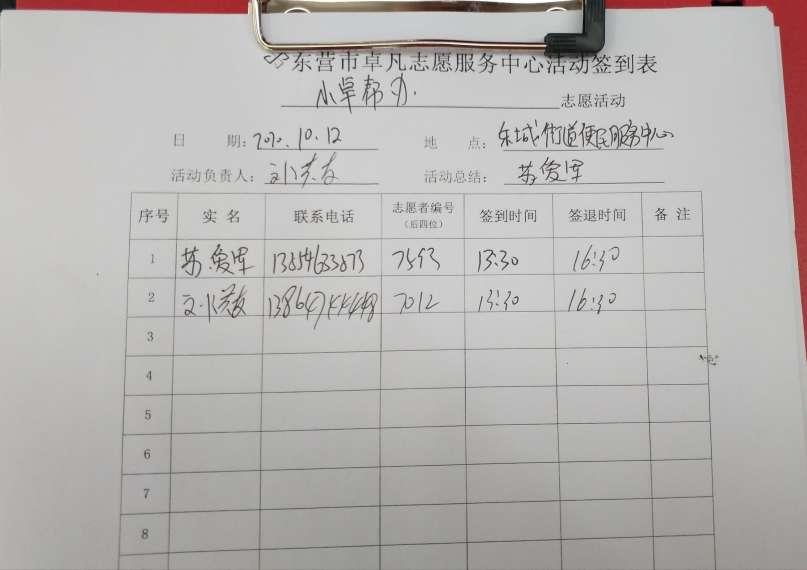 东营市卓凡志愿服务中心活动签到表
小卓帮办. 志愿活动
日 期: 2020.10.12 地 点: 东城街道便民服务中心
活动负责人: 刘洪友 活动总结: 苏爱军
序号 实 名 联系电话 志愿者编号（后四位） 签到时间 签退时间 备 注
1 苏爱军 7593 13:30 16:30
2 刘洪友 7012 13:30 16:30
3
4
5
6
7
8